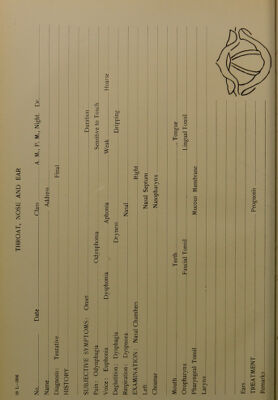 THROAT, NOSE AND EAR
No. Date Class A. M., P. M., Night. Dr.
Name Address
Diagnosis: Tentative Final
HISTORY
SUBJECTIVE SYMPTOMS: Onset Duration
Pain: Odynphagia Odynphonia Sensitive to Touch
Voice: Euphonia Dysphonia Aphonia Weak Hoarse
Deglutition: Dysphagia Dryness Dripping
Respiration: Dyspnoea Nasal
EXAMINATION: Nasal Chambers Right
Left Nasal Septum
Choanae Nasopharynx
Mouth Teeth Tongue
Oropharynx Faucial Tonsil Lingual Tonsil
Pharyngeal Tonsil Mucous Membrane
Larynx
Ears
TREATMENT Prognosis
Remarks